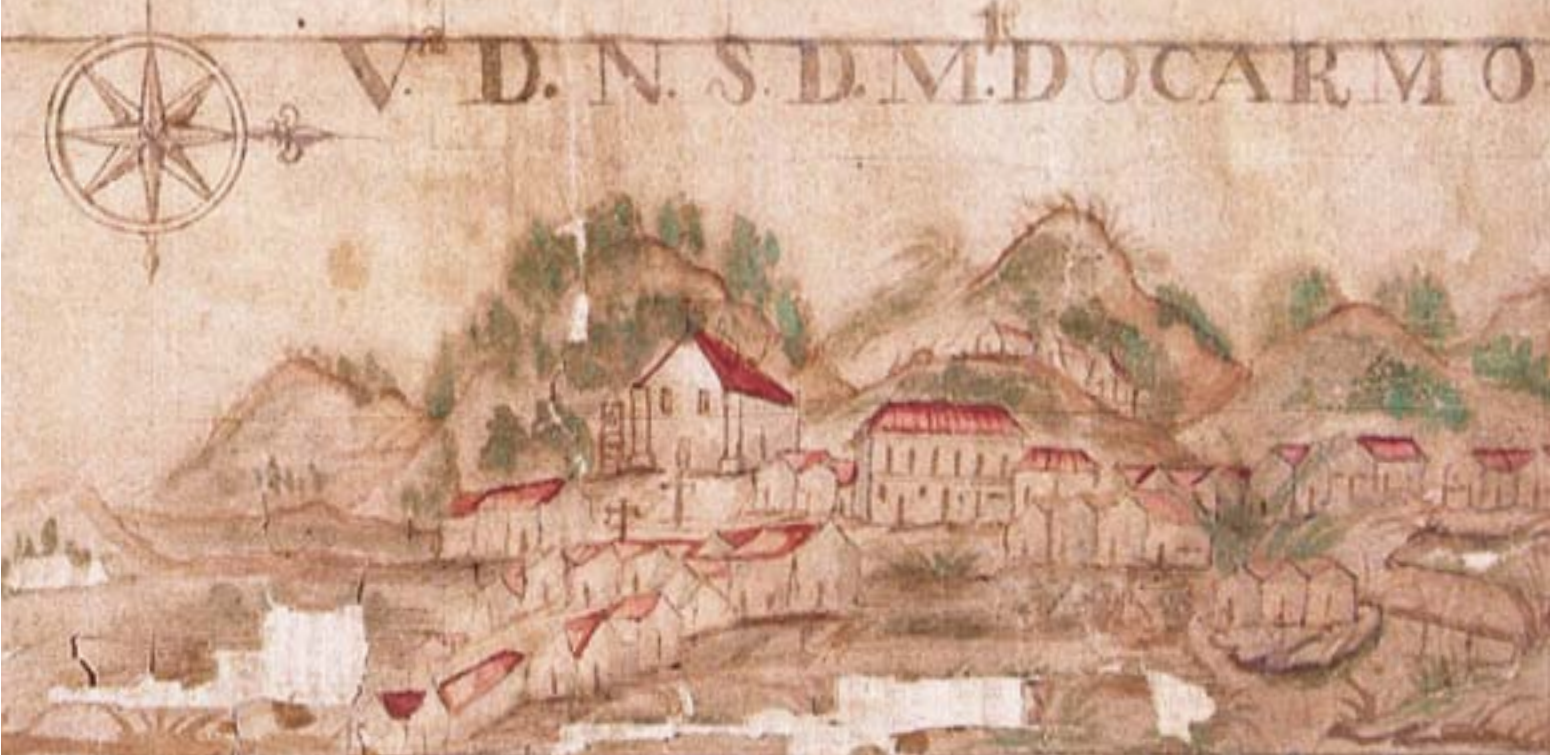 V.ª D. N. S. D. M.ᴱ DO CARMO